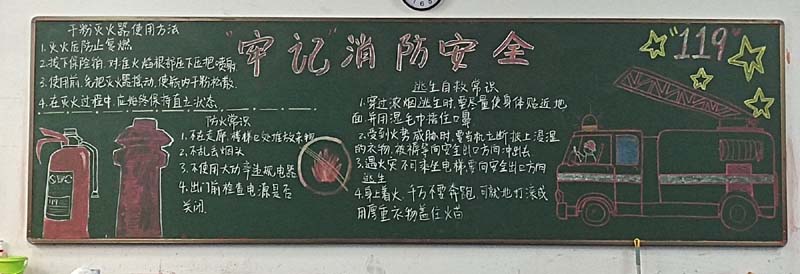 干粉灭火器使用方法
1.火火后防止复燃
2.拔下保险销,对准火焰根部压下压把喷射
3.使用前,先把灭火器摇动,使瓶内干粉松散
4.在灭火过程中,应始终保持直立状态
"牢记"消防安全
"119"
防火常识
1.不在走廊、楼梯口处堆放杂物
2.不乱丢烟头
3.不使用大功率违规电器
4.出门前检查电源是否
关闭
逃生自救常识
1.穿过浓烟逃生时,要尽量使身体贴近地
面,并用湿毛巾捂住口鼻
2.受到火势威胁时,要当机立断披上浸湿
的衣物、被褥等向安全出口方向冲出去
3.遇火灾不可乘坐电梯,要向安全出口方向
逃生
4.身上着火,千万不要奔跑,可就地打滚或
用厚重衣物盖住火苗